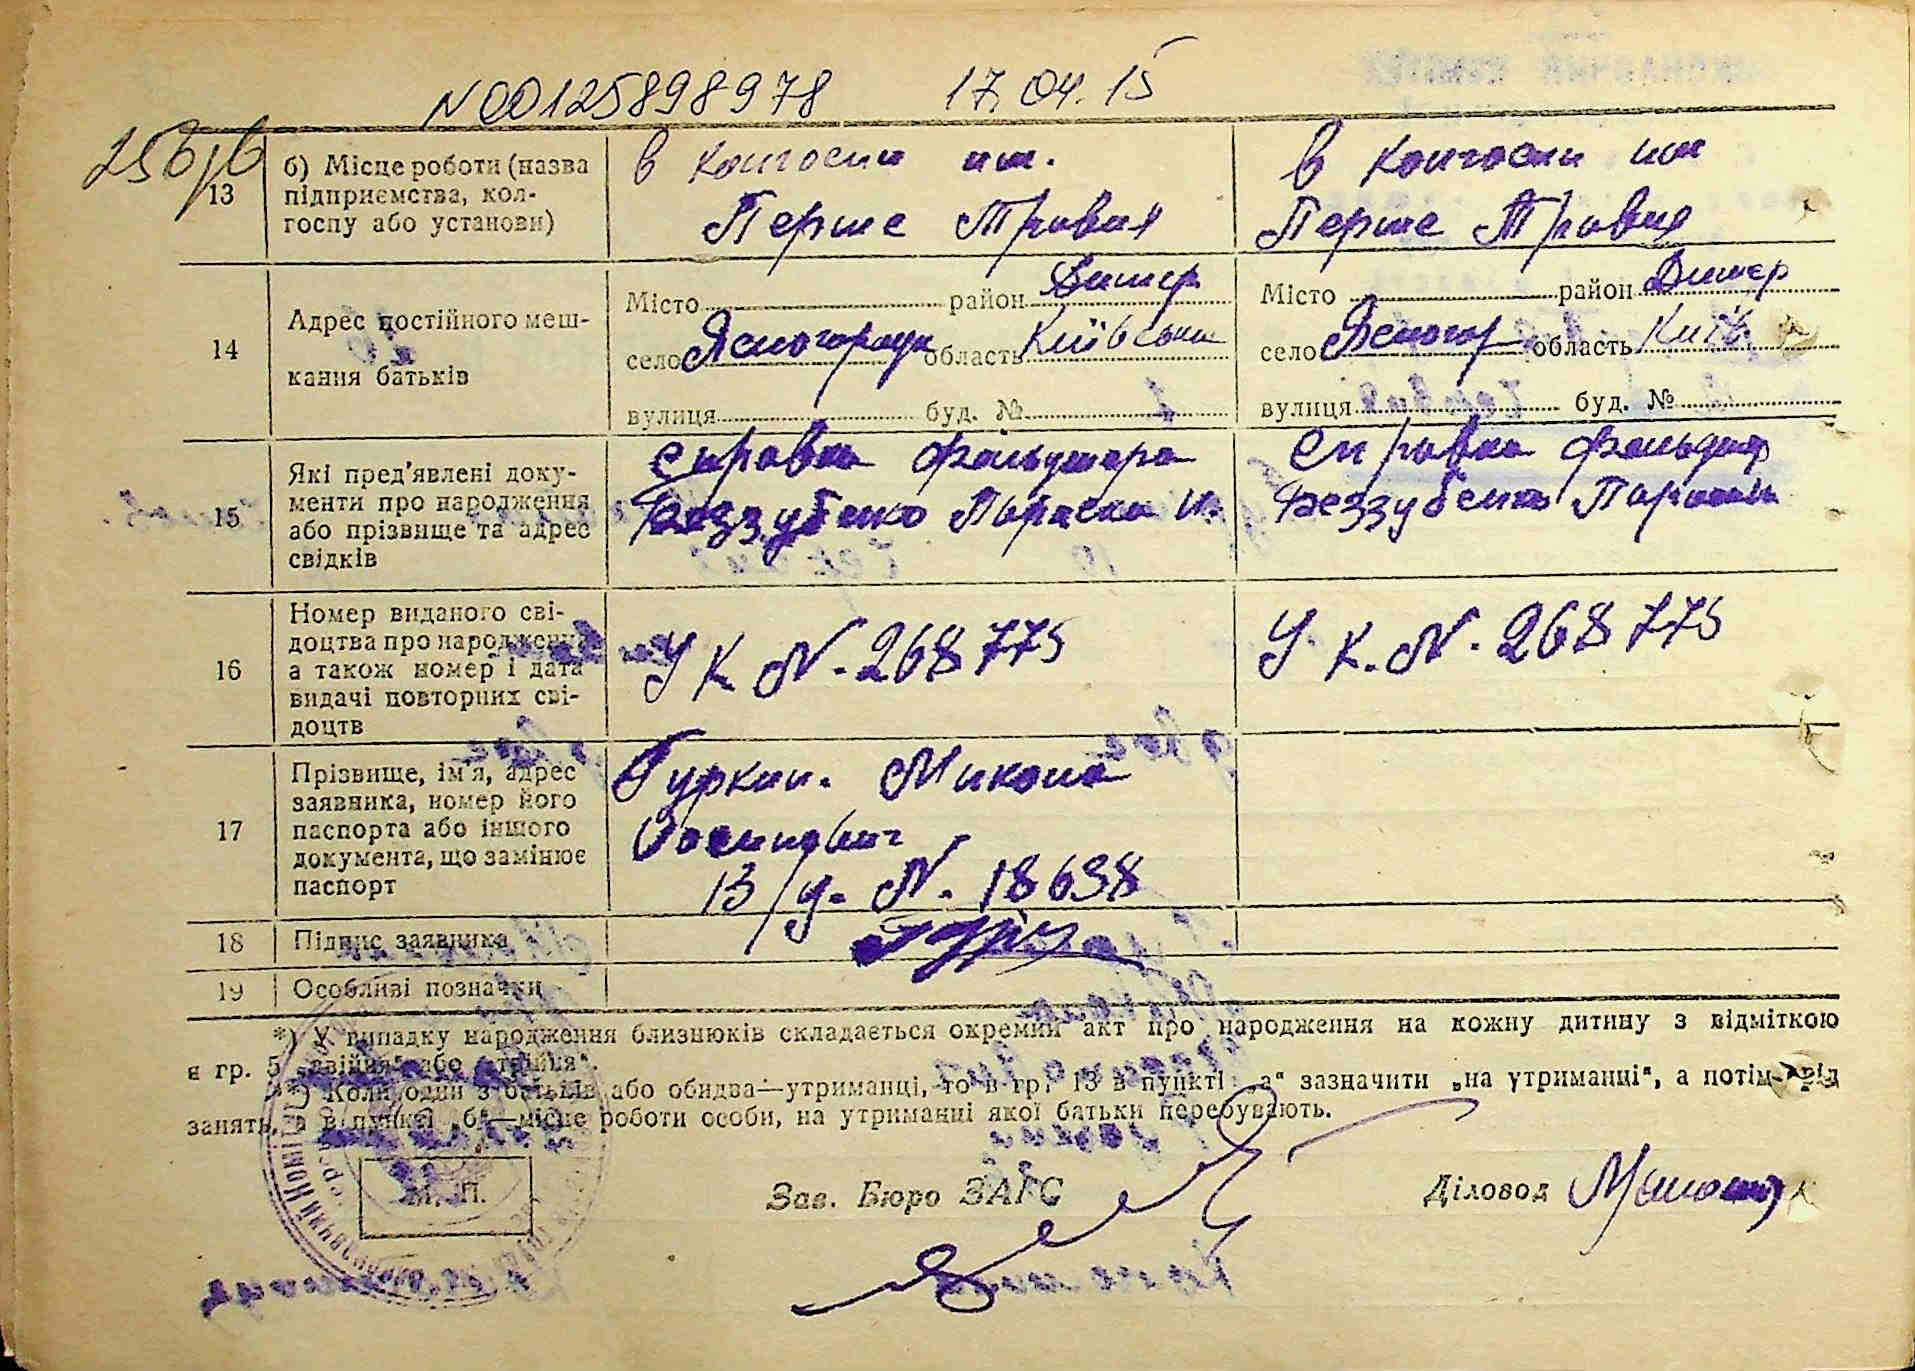 N00125898978 17.04.15
13
б) Місце роботи (назва
підприємства, кол-
госпу або установи)
в колгоспи им.
Перше Травня
в колгоспи им
Перше Травня
14
Адрес постійного меш-
кання батьків
Місто район Димер
село Ясногородк область Київська
вулиця буд. №
Місто район Димєр
село Ясногор область Київ
вулиця буд. №
15
Які пред'явлені доку-
менти про народження
або прізвище та адрес
свідків
справка фельдшера
Беззубенко Параска И.
справка фельдшер
Беззубенко Параски
16
Номер виданого сві-
доцтва про народження
а також номер і дата
видачі повторних сві-
доцтв
У К N. 268775
У. К. N. 268775
17
Прізвище, ім'я, адрес
заявника, номер його
паспорта або іншого
документа, що замінює
паспорт
Гуркин. Микола
Осипович
13/д. N. 18638
18
Підпис заявника
19
Особливі позначки
*) У випадку народження близнюків складається окремий акт про народження на кожну дитину з відміткою
в гр. 5 „двійня" або „трійня".
**) Коли один з батьків або обидва—утриманці, то в гр. 13 в пункті „а" зазначити „на утриманці", а потім рід
занять, а в пункті „б"—місце роботи особи, на утриманці якої батьки перебувають.
М. П.
Зав. Бюро ЗАГС
Діловод